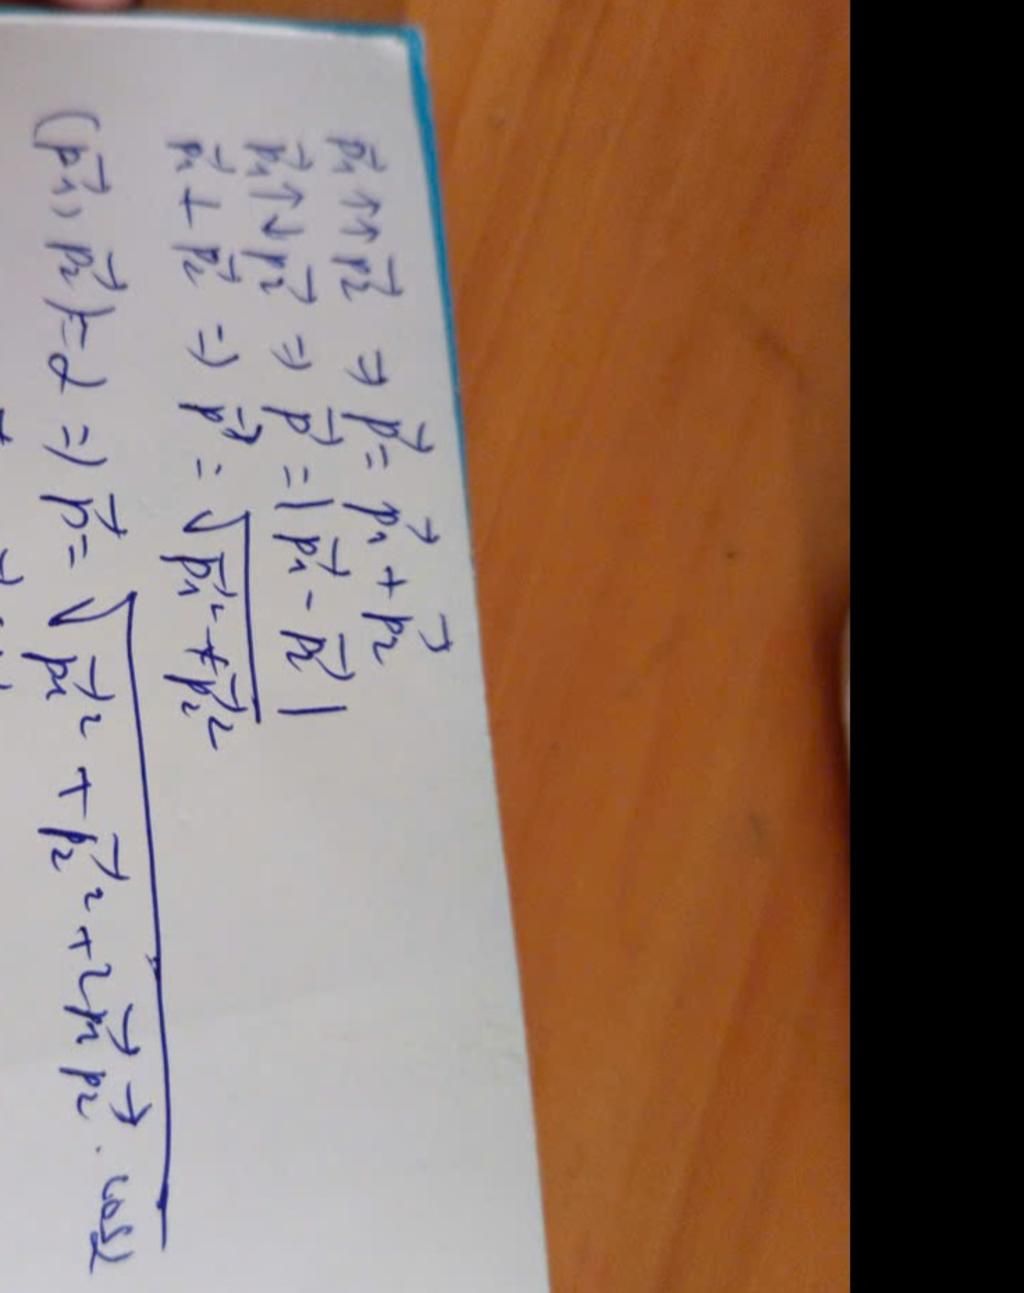 p₁→ ↑↑ p₂→ ⇒ p→ = p₁→ + p₂→
p₁→ ↑↓ p₂→ ⇒ p→ = |p₁→ - p₂→|
p₁→ ⊥ p₂→ ⇒ p→ = √(p₁→² + p₂→²)
(p₁→, p₂→) = α ⇒ p→ = √(p₁→² + p₂→² + 2p₁→p₂→ . cosα)